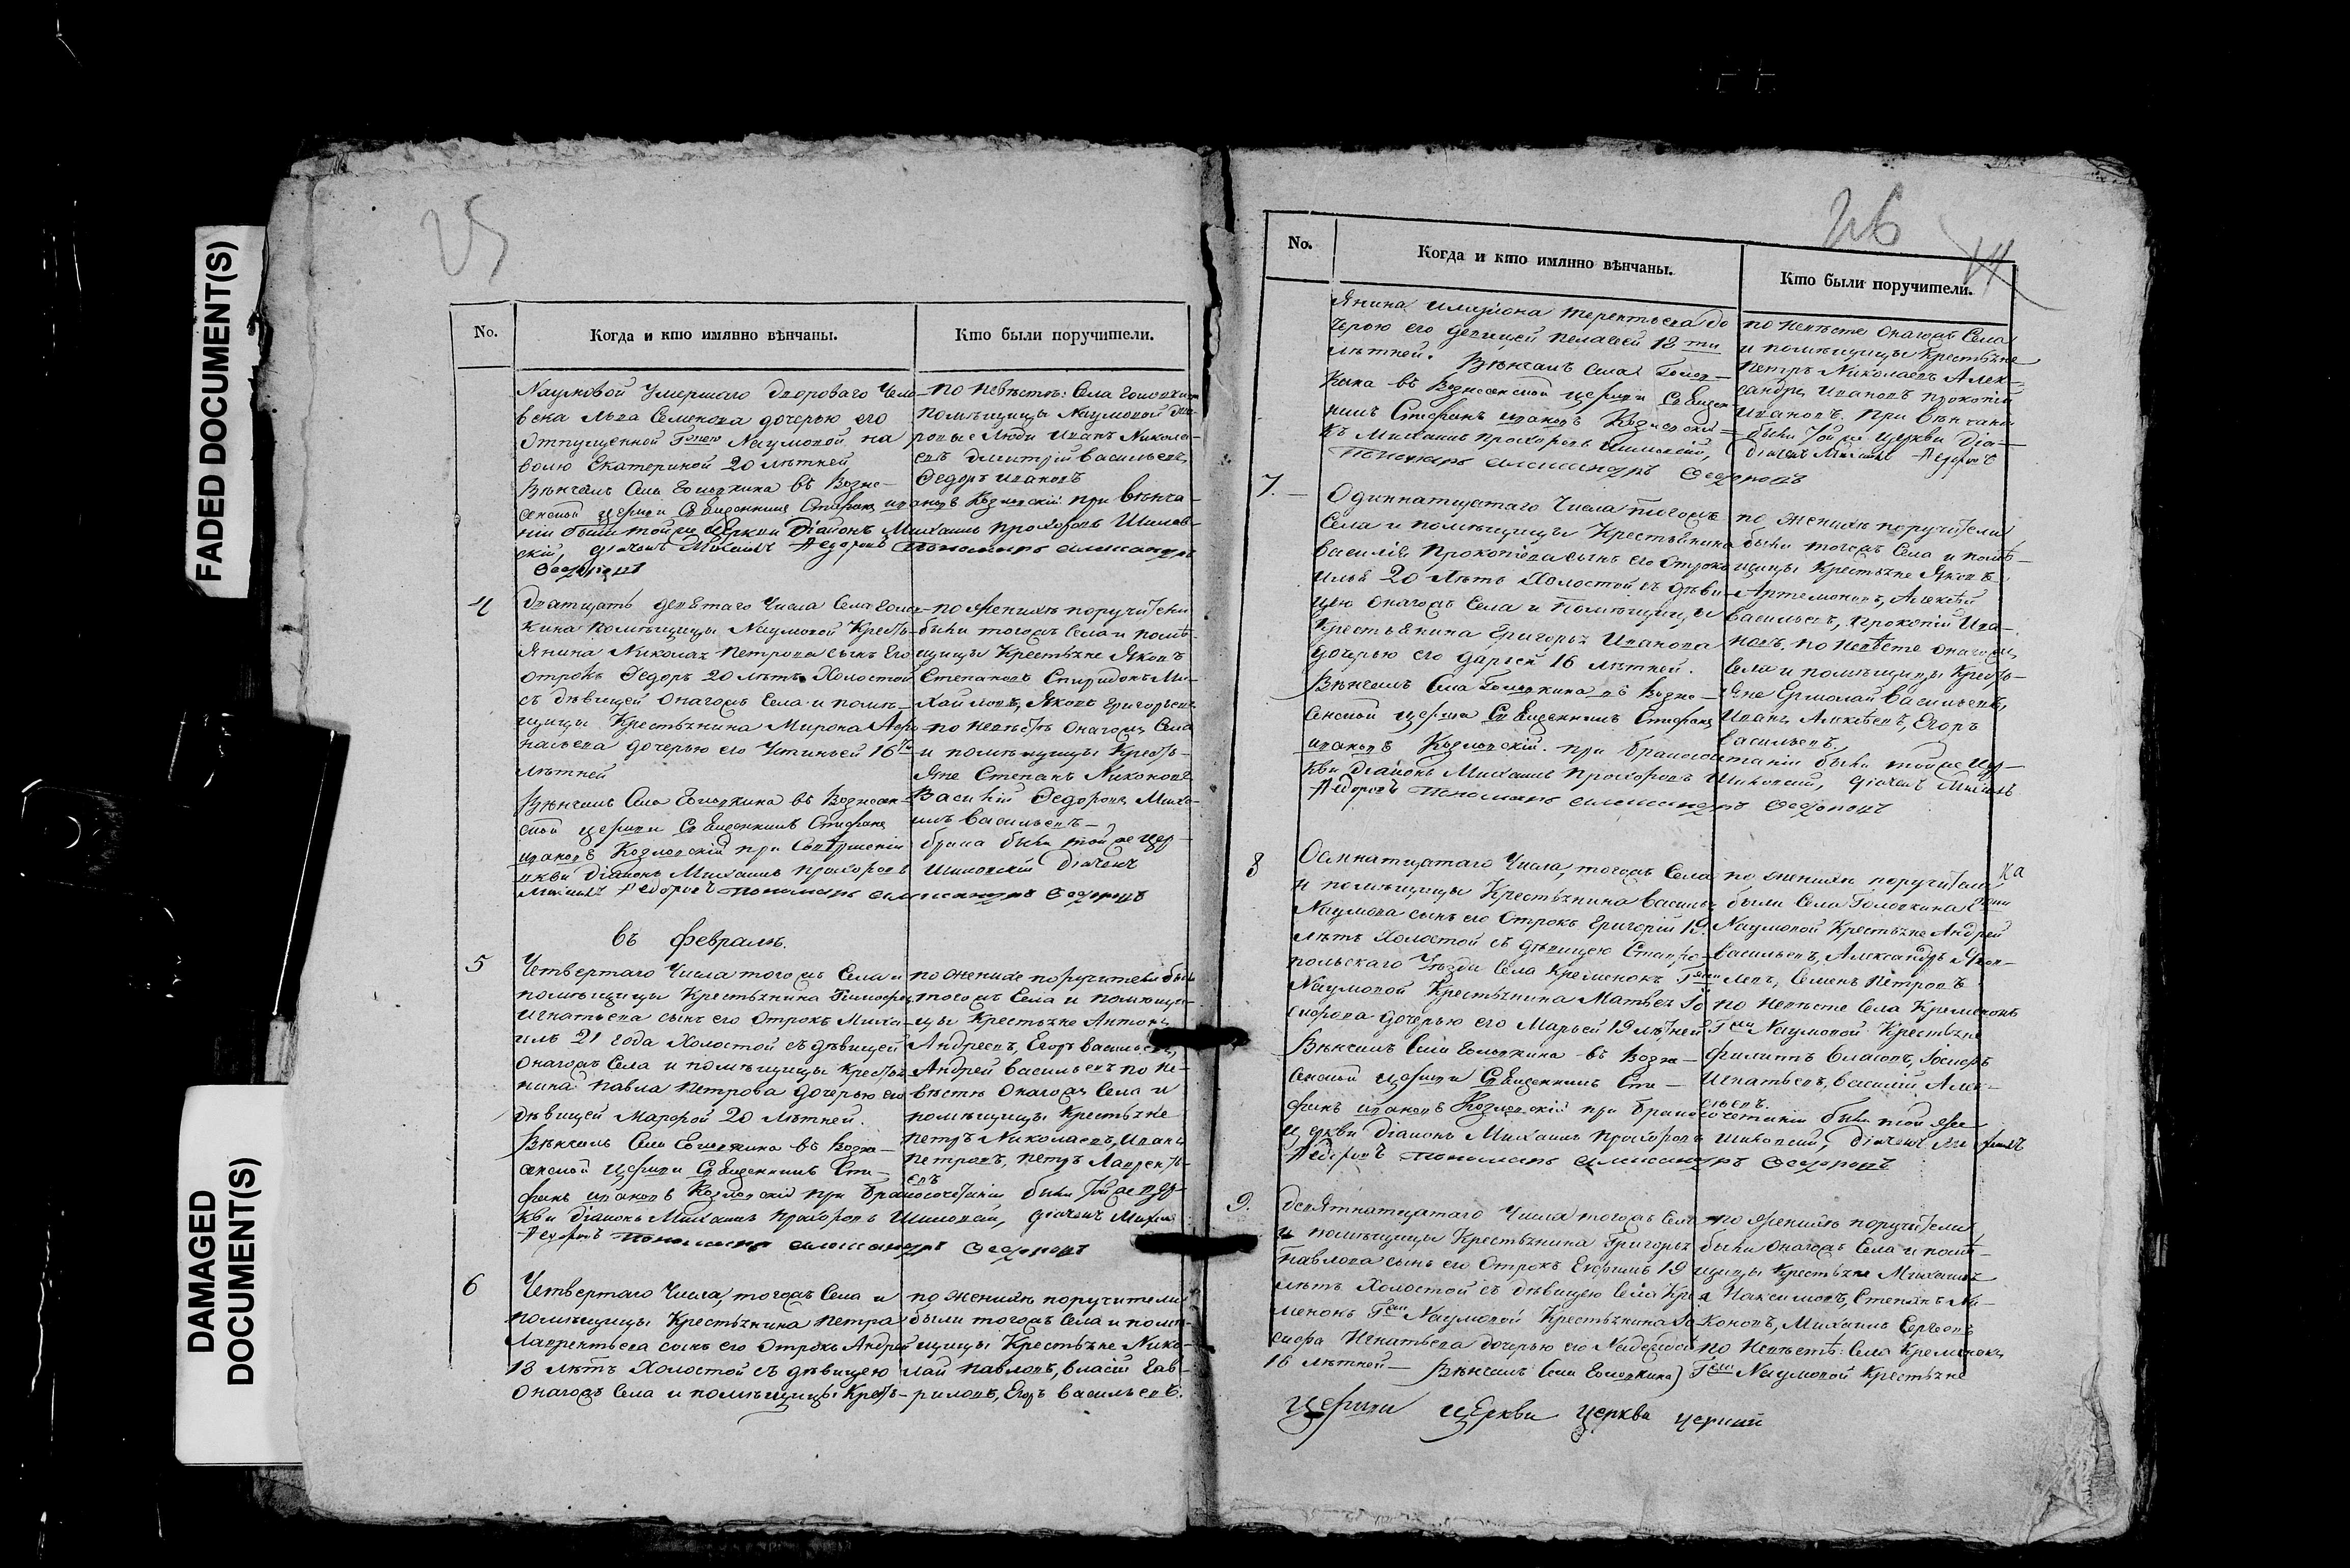 FADED DOCUMENT(S)
DAMAGED
DOCUMENT(S)
25
No.
Когда и кто имянно вѣнчаны.
Кто были поручители.
Наумовой Умершаго Двороваго Чело-
века Льва Семенова дочерью его
Отпущенной Наумовой на
волю Екатериной 20 лѣтней
Вѣнчалъ Села Головкина въ Возне-
сенской церкви Священникъ Стефанъ Ивановъ Козловскій при вѣнча-
ніи были тойже Церкви Діаконъ Михаилъ Прохоровъ
Дьячекъ Михаилъ Федоровъ Пономарь Александръ
Федоровъ
по невѣстѣ: Села Головкина
помѣщицы Наумовой дво-
ровые Люди Иванъ Никола-
евъ Дмитрій Васильевъ,
Федоръ Ивановъ
4
Дватцать девятаго Числа Села Голов-
кина помѣщицы Наумовой Кресть-
янина Николая Петрова сынъ Его
отрокъ Федоръ 20 лѣтъ Холостой
съ дѣвицей Онагожъ Села и помѣ-
щицы Крестьянина Мирона Афо-
насьева дочерью его Устиньей 16ти
лѣтней
Вѣнчалъ Села Головкина въ Вознесен-
ской церкви Священникъ Стефанъ
Ивановъ Козловскій при Совершеніи
брака были тойже цер-
кви Діаконъ Михаилъ Прохоровъ Дьячекъ
Михаилъ Федоровъ Пономарь Александръ Федоровъ
по Женихѣ поручители
были тогожъ Села и помѣ-
щицы Крестьяне Яковъ
Степановъ, Спиридонъ Ми-
хайловъ, Яковъ Григорьевъ
по Невѣстѣ Онагожъ Села
и помѣщицы Кресть-
яне Степанъ Никоновъ
Василій Федоровъ, Миха-
илъ Васильевъ
въ февралѣ.
5
Четвертаго Числа тогожъ Села и
помѣщицы Крестьянина Тимофея
Игнатьева сынъ его Отрокъ Миха-
илъ 21 года Холостой съ дѣвицей
Онагожъ Села и помѣщицы Кресть-
нина Павла Петрова дочерью его
дѣвицей Марфой 20 лѣтней.
Вѣнчалъ Села Головкина въ Возне-
сенской Церкви Священникъ Сте-
фанъ Ивановъ Козловскій при бракосочетаніи были тойже цер-
кви Діаконъ Михаилъ Прохоровъ Дьячекъ Михаилъ
Федоровъ Пономарь Александръ Федоровъ
по женихе поручители были
тогожъ Села и помѣщи-
цы Крестьяне Антонъ
Андреевъ, Егоръ Васильевъ,
Андрей Васильевъ по не-
вѣстѣ Онагожъ Села и
помѣщицы Крестьяне
Петръ Николаевъ, Иванъ
Петровъ, Петръ Лаврентъ-
евъ
6
Четвертаго Числа, тогожъ Села и
помѣщицы Крестьянина Петра
Лаврентьева сынъ его Отрокъ Андрей
18 лѣтъ Холостой съ дѣвицею
Онагожъ Села и помѣщицы Кресть-
по женихѣ поручители
были тогожъ Села и помѣ-
щицы Крестьяне Нико-
лай Павловъ, Власій Гав-
риловъ, Егоръ Васильевъ.
26
No.
Когда и кто имянно вѣнчаны.
Кто были поручители.
янина Терентьева до
черью его девицей Пелагеей 18ти
лѣтней. Вѣнчалъ Села Голов-
кина въ Вознесенской церкви Священ-
никъ Стефанъ Ивановъ Козловскій
Михаилъ Прохоровъ
Пономарь Александръ Федоровъ
по Невѣсте Онагожъ Села
и помѣщицы Крестьяне
Петръ Николаевъ Алек-
сандръ Ивановъ Прокопій
Ивановъ. При Вѣнчаніи
были тойже Церкви Діа-
Дьячекъ Михаилъ Федоровъ
7.
Одиннатцатаго Числа тогожъ
Села и помѣщицы Крестьянина
Василія Прокопіева сынъ его Отрокъ
Илья 20 лѣтъ Холостой съ дѣви-
цею Онагожъ Села и Помѣщицы
Крестьянина Григорья Иванова
дочерью его Дарьей 16 лѣтней.
Вѣнчалъ Села Головкина въ Возне-
сенской церкви Священникъ Стефанъ
Ивановъ Козловскій. при бракосочетаніи были тойже Цер-
кви Діаконъ Михаилъ Прохоровъ Дьячекъ Михаилъ
Федоровъ Пономарь Александръ Федоровъ
по женихѣ поручители
были тогожъ Села и помѣ-
щицы Крестьяне Яковъ
Артемоновъ, Алексѣй
Васильевъ, Прокопій Ива-
новъ. по Невѣсте Онагожъ
Села и помѣщицы Кресть-
яне Ермолай Васильевъ,
Иванъ Алексѣевъ, Егоръ
Васильевъ.
8
Осмнатцатаго Числа, тогожъ Села
и помѣщицы Крестьянина Василья
Наумова сынъ его Отрокъ Григорій 19.
лѣтъ Холостой съ дѣвицею Ставро-
польскаго Уѣзда Села Кременокъ
Наумовой Крестьянина Матвея
дочерью его Марьей 19 лѣтней
Вѣнчалъ Села Головкина въ Возне-
сенской Церкви Священникъ Сте-
фанъ Ивановъ Козловскій при бракосочетаніи были той же
Церкви Діаконъ Михаилъ Прохоровъ Дьячекъ Михаилъ
Федоровъ Пономарь Александръ Федоровъ
по женихѣ поручители
были Села Головкина
Наумовой Крестьяне Андрей
Васильевъ, Александръ Яков-
левъ, Семенъ Петровъ
по Невѣсте Села Кременокъ
Наумовой Крестьяне
Филиппъ Власовъ,
Игнатьевъ, Василій Алек-
сѣевъ.
9.
Девятнатцатаго Числа тогожъ Села
и помѣщицы Крестьянина Григорья
Павлова сынъ его Отрокъ Ефимъ 19
лѣтъ Холостой съ дѣвицею Села Кре-
менокъ Наумовой Крестьянина
Игнатьева дочерью его
16 лѣтней— Вѣнчалъ Села Головкина)
по Женихѣ поручители
были Онагожъ Села и помѣ-
щицы Крестьяне Михаилъ
Максимовъ, Степанъ Ни-
коновъ, Михаилъ Сергѣевъ
по Невѣстѣ: Села Кременокъ
Наумовой Крестьяне
Церкви Церкви Церква